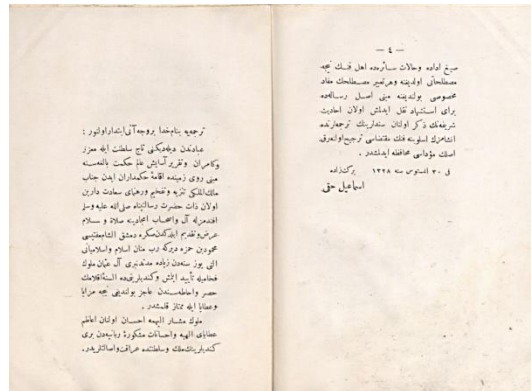 — ٤ —
صیغ اداده و حالات سائرهده اهل فنك نیجه
مصطلحاتی اولدیغنه و هر تعبیر مصطلحك مفاد
مخصوصی بولندیغنه مبنی اصل رسالهده
برای استشهاد نقل ایدلمش اولان احادیث
شریفهنك ذکر اولنان سندلرینك ترجمهلرنده
انشامزك اسلوبنه فنك مقتضاسی ترجیح اولنهرق
اصلك مؤداسی محافظه ایدلمشدر .
فی ٣٠ اغستوس سنه ١٣٢٨
برکت زاده
اسماعیل حقی
ترجمهیه بنام خدا بر وجه آتی ابتدار اولنور :
عبادندن دیلدیکنی تاج سلطنت ایله معزز
وکامران وتقریر آسایش عالم حکمت بالغهسنه
مبنی روی زمینده اقامهٔ حکمداران ایدن جناب
مالك الملکی تنزیه وتفخیم ورهنمای سعادت دارین
اولان ذات حضرت رسالتپناه صلی الله علیه وسلم
افندمزله آل واصحاب امجادینه صلاة و سلام
عرض وتقدیم ایتدکدن صکره دمشق الشام مفتیسی
محمود بن حمزه دیرکه رب منان اسلام واسلامیانی
التی یوز سنهدن زیاده مدتدنبری آل عثمان ملوك
فخامیله تأیید ایتمش وکندیلرینی ده السنهٔ اقلامك
حصر واحاطهسندن عاجز بولندیغی نیجه مزایا
وعطایا ایله ممتاز قلمشدر .
ملوك مشار الیهمه احسان اولنان اعاظم
عطایای الهیه واحسانات مشکورهٔ ربانیهدن بری
کندیلرینك ملك وسلطنتده عراقت واصالتلریدر .